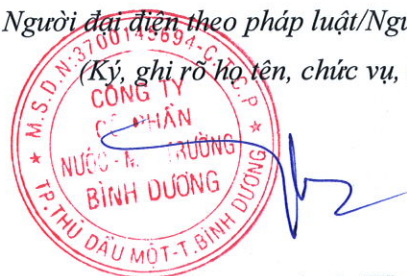 Người đại diện theo pháp luật/Ngư
(Ký, ghi rõ họ tên, chức vụ,
M.S.D.N:3700145694-C.T.C.P
CÔNG TY
CỔ PHẦN
NƯỚC - TRƯỜNG
BÌNH DƯƠNG
TP.THỦ DẦU MỘT-T.BÌNH DƯƠNG